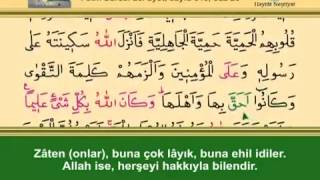 قُلُوبِهِمُ الْحَمِيَّةَ حَمِيَّةَ الْجَاهِلِيَّةِ فَاَنْزَلَ اللّٰهُ سَكِينَتَهُ عَلٰى
رَسُولِهِ وَعَلَى الْمُؤْمِنِينَ وَاَلْزَمَهُمْ كَلِمَةَ التَّقْوٰى
وَكَانُٓوا اَحَقَّ بِهَا وَاَهْلَهَا وَكَانَ اللّٰهُ بِكُلِّ شَيْءٍ عَلِيمًا
Zâten (onlar), buna çok lâyık, buna ehil idiler.
Allah ise, herşeyi hakkıyla bilendir.